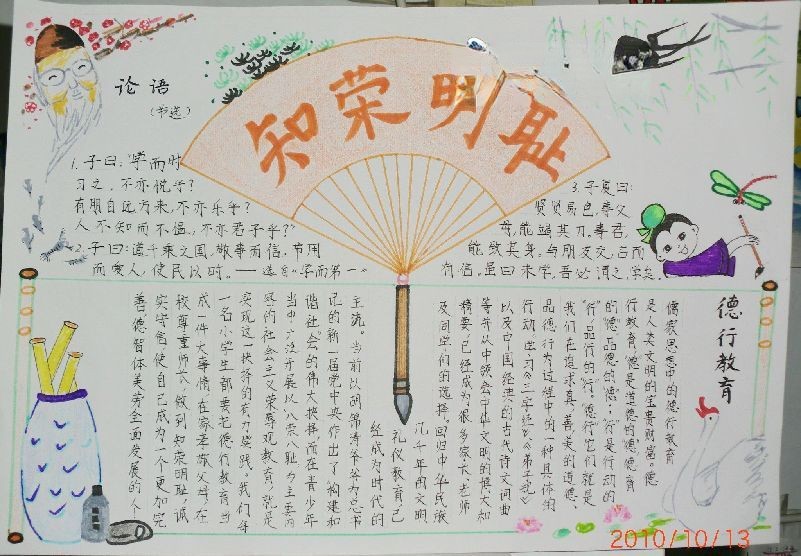 知荣明耻
论语
（节选）
1.子曰：“学而时
习之，不亦悦乎？
有朋自远方来，不亦乐乎？
人不知而不愠，不亦君子乎？”
2.子曰：道千乘之国，敬事而信，节用
而爱人，使民以时。——选自《学而第一》
3.子夏曰：
贤贤易色，事父
母，能竭其力，事君，
能致其身。与朋友交，言而
有信。虽曰未学，吾必谓之学矣。
德行教育
儒家思想中的德行教育
是人类文明的宝贵财富。德
行教育，“德”是道德的“德”，德育
的“德”，品德的“德”；“行”是行动的
“行”，品行的“行”。德行它们就是
我们在追求真、善、美的道德、
品德、行为过程中的一种具体的
行动。学习《三字经》《弟子规》
以及中国经典的古代诗文词曲
等并从中领会中华文明的博大和
精要，已经成为很多家长、老师
及同学们的选择。回归中华民族
几千年的文明
礼仪教育已
经成为时代的
主流。当前以胡锦涛爷爷为总书
记的新一届党中央作出了“构建和
谐社会”的伟大抉择而在青少年
当中广泛开展以“八荣八耻”为主要内
容的社会主义荣辱观教育，就是
实现这一抉择的有力实践。我们每
一名小学生都要把德行教育当
成一件大事情，在家孝敬父母，在
校尊重师长，做到知荣明耻，诚
实守信，使自己成为一个更加完
善，德智体美劳全面发展的个人
2010/10/13